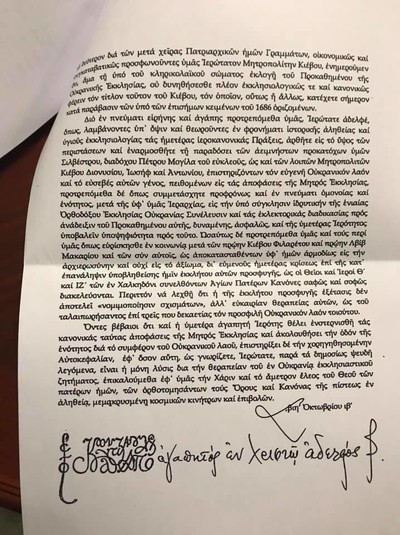 δεύτερον διά τῶν μετά χεῖρας Πατριαρχικῶν ἡμῶν Γραμμάτων, οἰκονομικῶς καί
συγκαταβατικῶς προσφωνοῦντες ὑμᾶς Ἱερώτατον Μητροπολίτην Κιέβου, ἐνημεροῦμεν
ὅτι, ἅμα τῇ ὑπό τοῦ κληρικολαϊκοῦ σώματος ἐκλογῇ τοῦ Προκαθημένου τῆς
Οὐκρανικῆς Ἐκκλησίας, οὐ δυνηθήσεσθε πλέον ἐκκλησιολογικῶς τε καί κανονικῶς
φέρειν τόν τίτλον τοῦτον τοῦ Κιέβου, τόν ὁποῖον, οὕτως ἤ ἄλλως, κατέχετε σήμερον
κατά παράβασιν τῶν ὑπό τῶν ἐπισήμων κειμένων τοῦ 1686 ὁριζομένων.
Διό ἐν πνεύματι εἰρήνης καί ἀγάπης προτρεπόμεθα ὑμᾶς, Ἱερώτατε ἀδελφέ,
ὅπως, λαμβάνοντες ὑπ' ὄψιν καί θεωροῦντες ἐν φρονήματι ἱστορικῆς ἀληθείας καί
ὑγιοῦς ἐκκλησιολογίας τάς ἡμετέρας ἱεροκανονικάς Πράξεις, ἀρθῆτε εἰς τό ὕψος τῶν
περιστάσεων καί ἐναρμοσθῆτε τῇ παραδόσει τῶν ἀειμνήστων προκατόχων ὑμῶν
Σιλβέστρου, διαδόχου Πέτρου Μογίλα τοῦ εὐκλεοῦς, ὡς καί τῶν λοιπῶν Μητροπολιτῶν
Κιέβου Διονυσίου, Ἰωσήφ καί Ἀντωνίου, ἐπιστηρίζοντες τόν εὐγενῆ Οὐκρανικόν λαόν
καί τό εὐσεβές αὐτῶν γένος, πειθομένων εἰς τάς ἀποφάσεις τῆς Μητρός Ἐκκλησίας,
προτρεπόμεθα δέ ὅπως συμμετάσχητε προφρόνως καί ἐν πνεύματι ὁμονοίας καί
ἑνότητος, μετά τῆς ὑφ' ὑμᾶς Ἱεραρχίας, εἰς τήν ὑπό σύγκλησιν ἱδρυτικήν τῆς ἑνιαίας
Ὀρθοδόξου Ἐκκλησίας Οὐκρανίας Συνέλευσιν καί τάς ἐκλεκτορικάς διαδικασίας πρός
ἀνάδειξιν τοῦ Προκαθημένου αὐτῆς, δυναμένης, ἀσφαλῶς, καί τῆς ὑμετέρας Ἱερότητος
ὑποβαλεῖν ὑποψηφιότητα πρός τοῦτο. Ὡσαύτως δέ προτρεπόμεθα ὑμᾶς καί τούς περί
ὑμᾶς ὅπως εὑρίσκησθε ἐν κοινωνίᾳ μετά τῶν πρῴην Κιέβου Φιλαρέτου καί πρῴην Λβίβ
Μακαρίου καί τῶν σύν αὐτοῖς, ὡς ἀποκατασταθέντων ὑφ' ἡμῶν ἁρμοδίως εἰς τήν
ἀρχιερωσύνην καί οὐχί εἰς τό ἀξίωμα, δι' εὐμενοῦς ἡμετέρας κρίσεως ἐπί τῆς κατ'
ἐπανάληψιν ὑποβληθείσης ἡμῖν ἐκκλήτου αὐτῶν προσφυγῆς, ὡς οἱ Θεῖοι καί Ἱεροί Θ'
καί ΙΖ' τῶν ἐν Χαλκηδόνι συνελθόντων Ἁγίων Πατέρων Κανόνες σαφῶς καί σοφῶς
διακελεύονται. Περιττόν νά λεχθῇ ὅτι ἡ τῆς ἐκκλήτου προσφυγῆς ἐξέτασις δέν
ἀποτελεῖ «νομιμοποίησιν σχισμάτων», ἀλλ' εὐκαίραν θεραπείας αὐτῶν, ὡς τοῦ
ταλαιπωρήσαντος ἐπί τρεῖς που δεκαετίας τόν προσφιλῆ Οὐκρανικόν λαόν τοιούτου.
Ὄντες βέβαιοι ὅτι καί ἡ ὑμετέρα ἀγαπητή Ἱερότης θέλει ἐνστερνισθῆ τάς
κανονικάς ταύτας ἀποφάσεις τῆς Μητρός Ἐκκλησίας καί ἀκολουθήσει τήν ὁδόν τῆς
ἑνότητος διά τό συμφέρον τοῦ Οὐκρανικοῦ λαοῦ, ἐπιστηρίξει δέ τήν χορηγηθησομένην
Αὐτοκεφαλίαν, ἐφ' ὅσον αὕτη, ὡς γνωρίζετε, Ἱερώτατε, παρά τά δημοσίως ψευδῆ
λεγόμενα, εἶναι ἡ μόνη λύσις διά τήν θεραπείαν τοῦ ἐν Οὐκρανίᾳ ἐκκλησιαστικοῦ
ζητήματος, ἐπικαλούμεθα ἐφ' ὑμᾶς τήν Χάριν καί τό ἄμετρον ἔλεος τοῦ Θεοῦ τῶν
πατέρων ἡμῶν, τῶν ὀρθοτομησάντων τούς Ὅρους καί Κανόνας τῆς πίστεως ἐν
ἀληθείᾳ, μεμακρυσμένη κοσμικῶν κινήτρων καί ἐπιβολῶν.
͵βιη' Ὀκτωβρίου ιβ'
ἀγαπητός ἐν Χριστῷ ἀδελφός